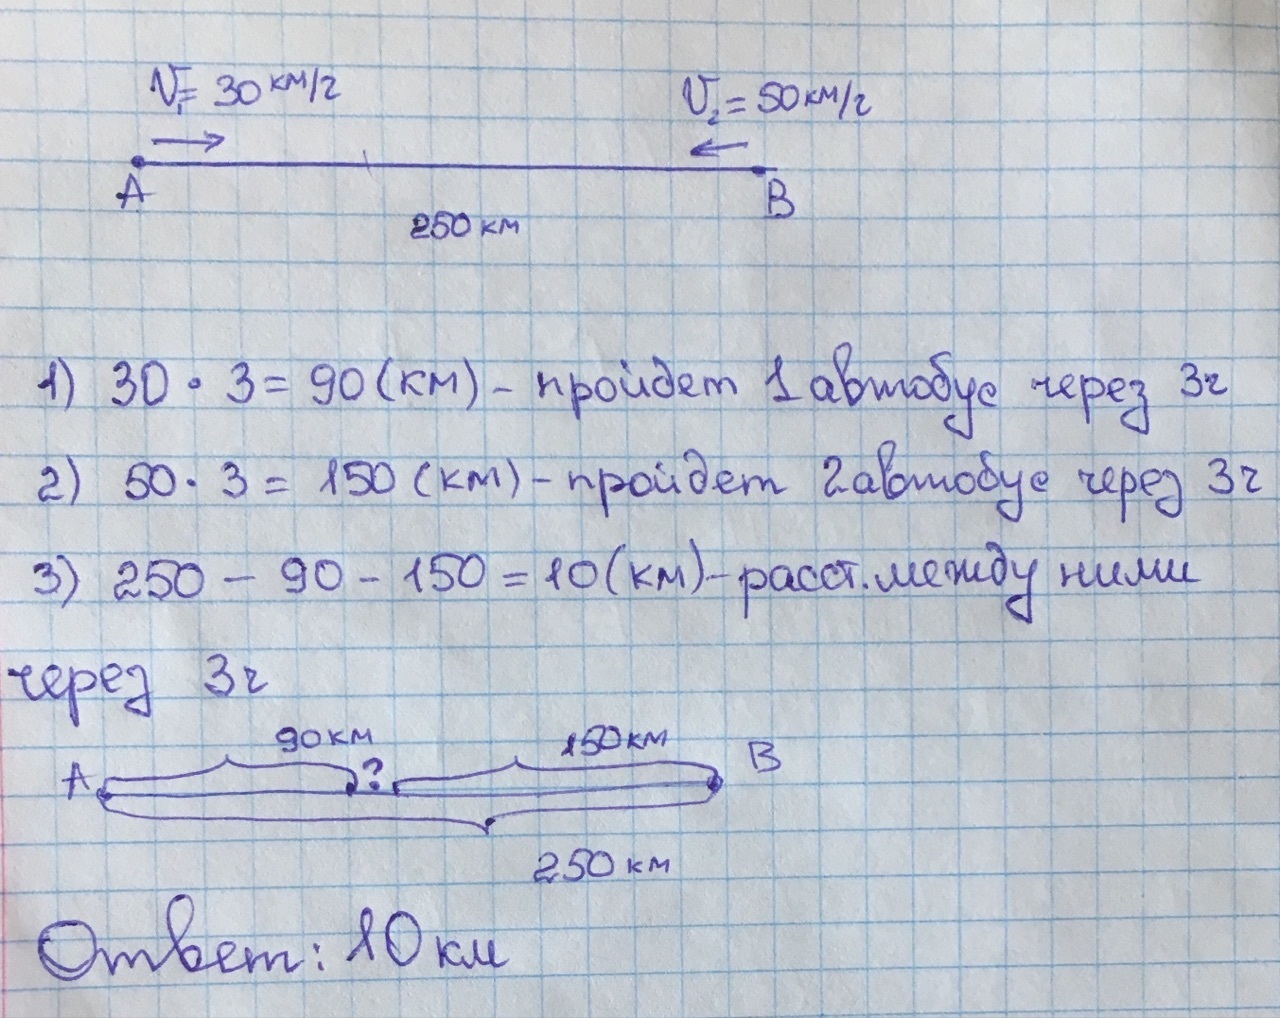 V₁= 30 км/г V₂ = 50 км/г
A B
250 км
1) 30 · 3 = 90 (км) - пройдет 1 автобус через 3г
2) 50 · 3 = 150 (км) - пройдет 2 автобус через 3г
3) 250 - 90 - 150 = 10 (км) - расст. между ними
через 3г
90 км 150 км
A ? B
250 км
Ответ: 10 км